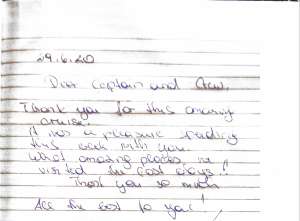 29.6.20
Dear Captain and Crew.
Thank you for this amazing
cruise.
It was a pleasure
this week with you.
What amazing places, we
visited the best days!
Thank you so much
All the best to you!